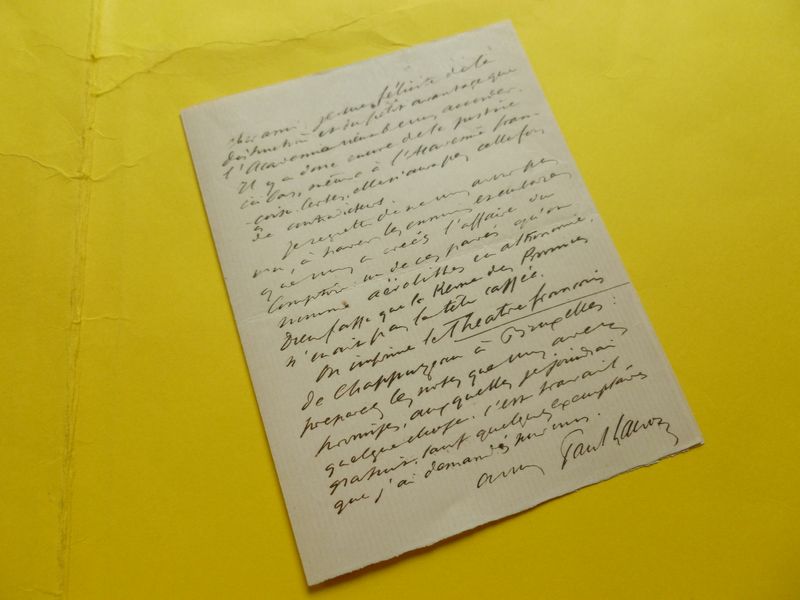 cher ami, je vous félicite de la
distinction et du petit avantage que
l'Académie vient de vous accorder.
Il y a donc encore de la justice
ici bas, même à l'Académie fran-
-çaise. Certes, elle n'aura pas cette fois
de contradicteurs.
Je regrette de ne vous avoir pas
vu, à travers les ennuis
que nous a créés l'affaire du
Comptoir : un de ces pavés qu'on
nomme aérolithes en astronomie.
Dieu fasse que la Revue des Provinces
n'en ait pas la tête cassée.
On imprime le Théâtre françois
de Chappuzeau à Bruxelles :
préparez les notes que vous avez
promises, auxquelles je joindrai
quelque chose. C'est travail
gratuit, sauf quelques exemplaires
que j'ai demandés pour nous.
Paul Lacroix